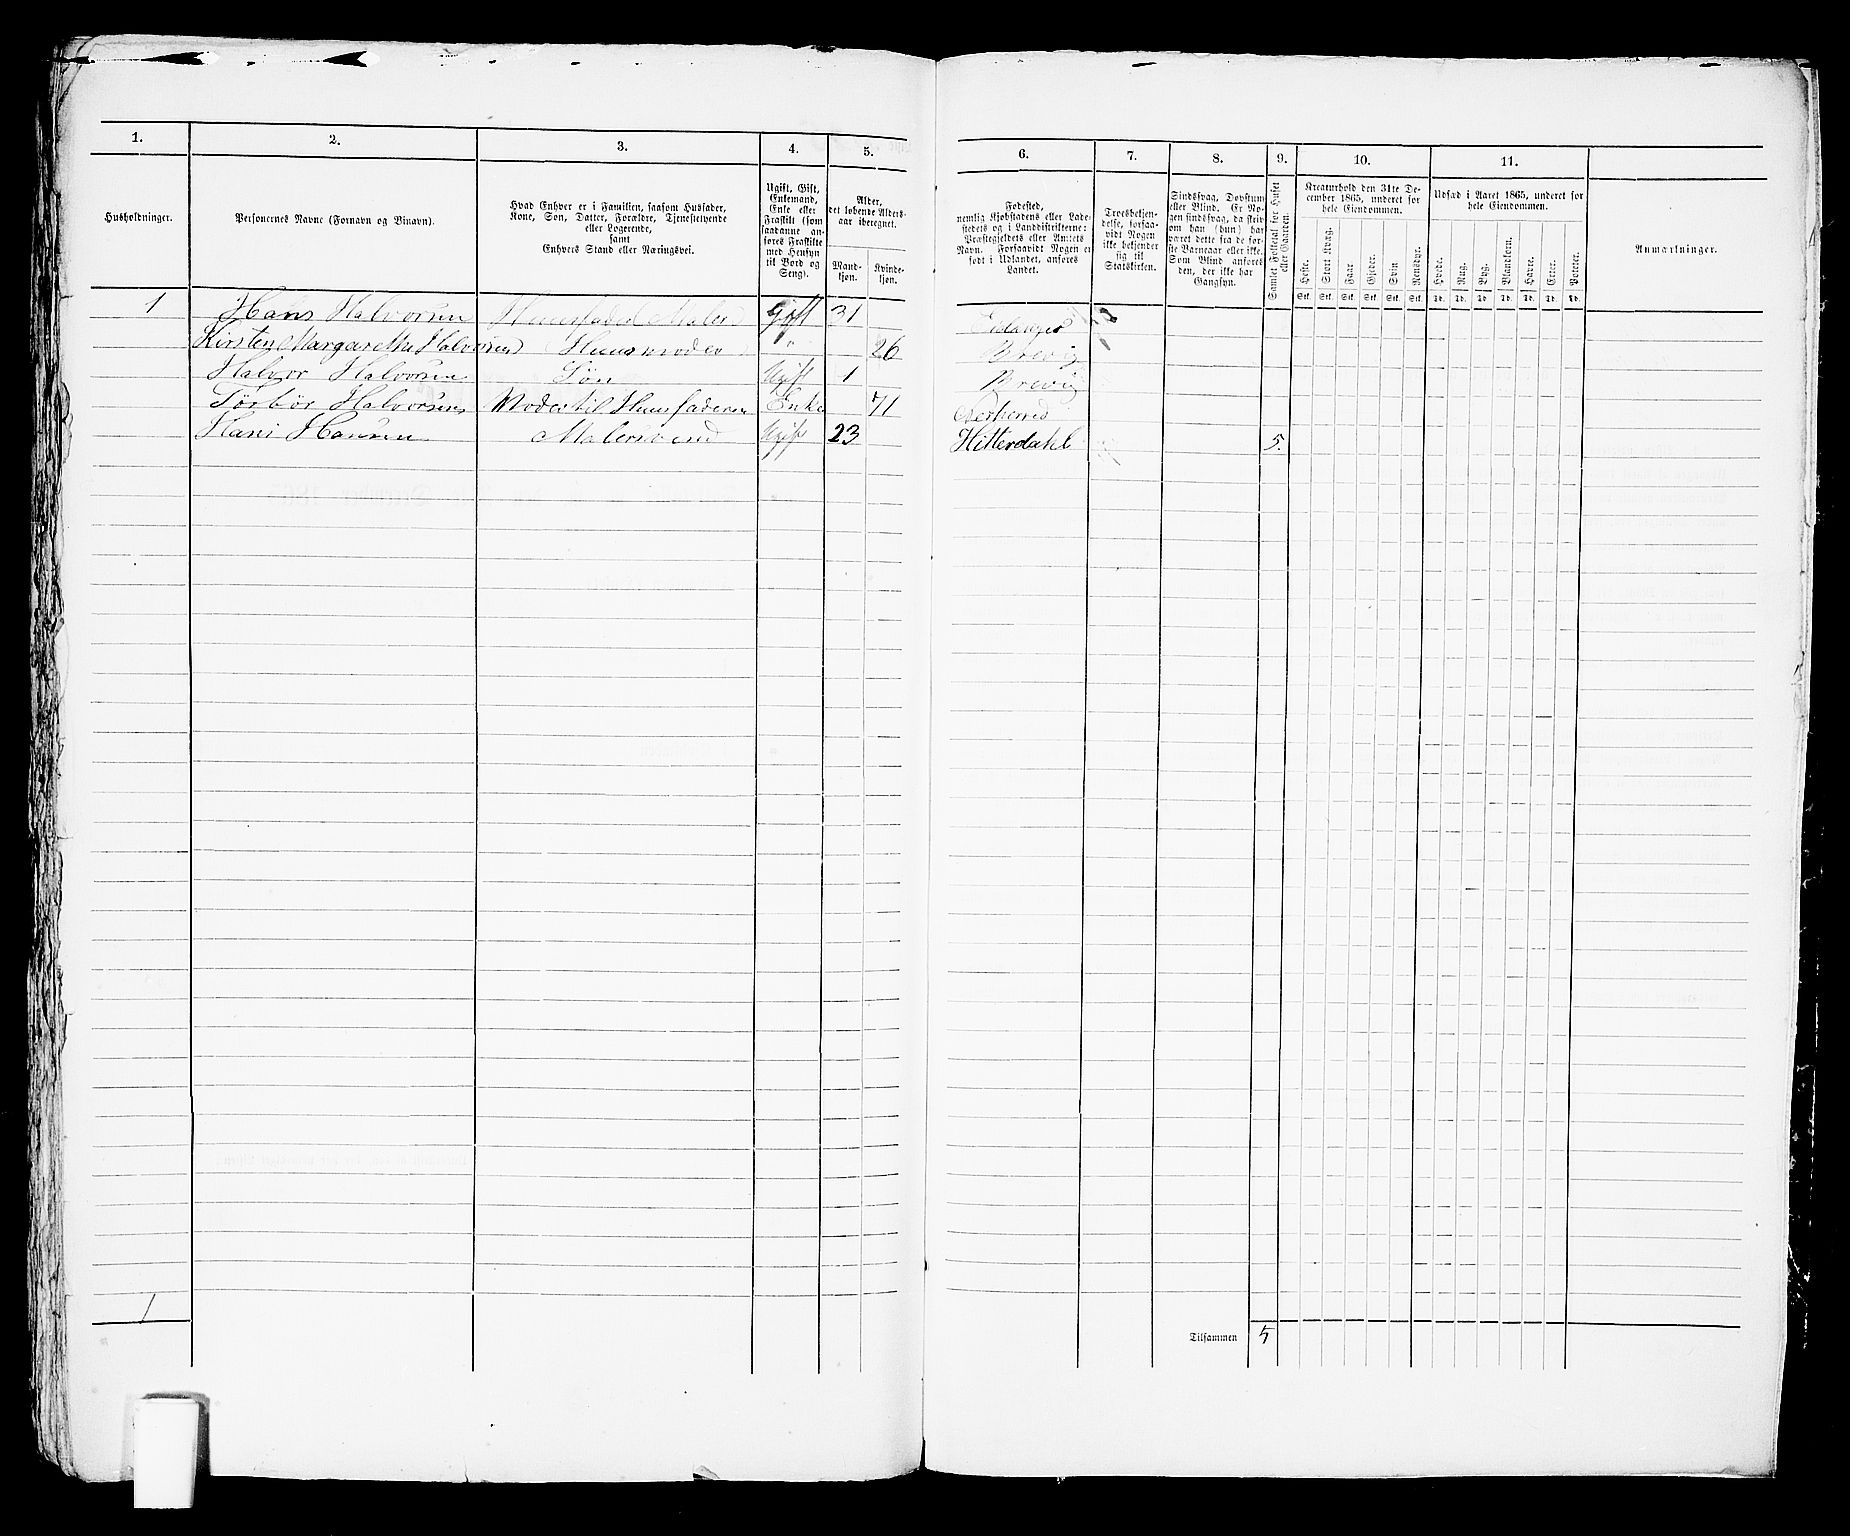 1.
2.
3.
4.
5.
Husholdninger.
Personernes Navne (Fornavn og Binavn).
Hvad Enhver er i Familien, saasom Husfader,
Kone, Søn, Datter, Forældre, Tjenestetyende
eller Logerende,
samt
Enhvers Stand eller Næringsvei.
Ugift, Gift,
Enkemand,
Enke eller
Fraskilt (som
saadanne an-
føres Fraskilte
med Hensyn
til Bord og
Seng).
Alder,
det løbende Alders-
aar iberegnet.
Mand-
kjøn.
Kvinde-
kjøn.
1 Hans Halvorsen Huusfader Maler Gift 31
Kirsten Margarethe Halvorsen Huusmoder " 26
Halvor Halvorsen Søn Ugift 1
Torbør Halvorsen Moder til Huusfaderen Enke 71
Hans Hansen Malersvend Ugift 23
1
6.
7.
8.
9.
10.
11.
Fødested,
nemlig Kjøbstadens eller Lade-
stedets og i Landdistrikterne:
Præstegjeldets eller Amtets
Navn. Forsaavidt Nogen er
født i Udlandet, anføres
Landet.
Troesbekjen-
delse, forsaa-
vidt Nogen
ikke bekjender
sig til
Statskirken.
Sindssvag, Døvstum
eller Blind. Er No-
gen sindssvag, da skriv
om han (hun) har
været dette fra de før-
ste Barneaar eller ikke.
Som Blind anføres
den, der ikke har
Gangsyn.
Samlet Folketal for Huset
eller Gaarden.
Kreaturhold den 31te De-
cember 1865, underet for
hele Eiendommen.
Heste.
Stort Kvæg.
Faar.
Gjeder.
Svin
Rensdyr.
Stk. Stk. Stk. Stk. Stk. Stk.
Udsæd i Aaret 1865, underet for
hele Eiendommen.
Hvede.
Rug.
Byg.
Blandkorn.
Havre.
Erter.
Poteter.
Td. Td. Td. Td. Td. Td. Td.
Anmærkninger.
Eidanger
Brevig
Brevig
Hitterdahl 5.
Tilsammen 5